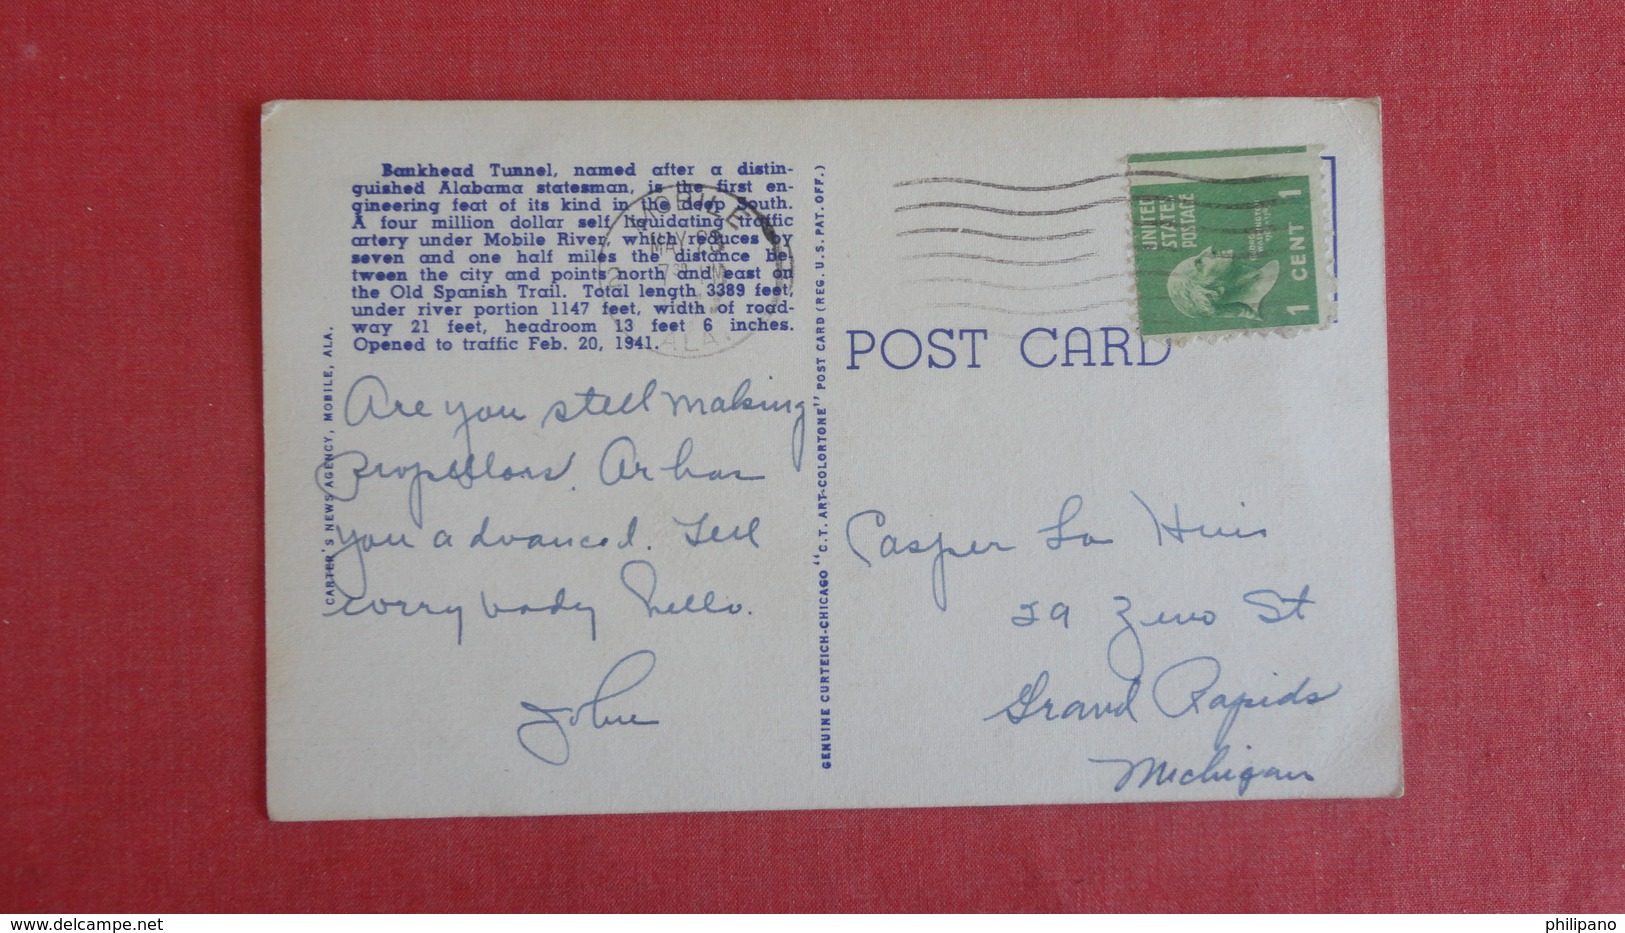 Bankhead Tunnel, named after a distin-
guished Alabama statesman, is the first en-
gineering feat of its kind in the deep South.
A four million dollar self liquidating traffic
artery under Mobile River, which reduces by
seven and one half miles the distance be
tween the city and points north and east on
the Old Spanish Trail. Total length 3389 feet,
under river portion 1147 feet, width of road-
way 21 feet, headroom 13 feet 6 inches.
Opened to traffic Feb. 20, 1941.
MOBILE
MAY 28
ALA.
CARTER'S NEWS AGENCY, MOBILE, ALA.
Are you still making
propellors. Or has
you advanced. Tell
every body hello.
John
GENUINE CURTEICH-CHICAGO "C.T. ART-COLORTONE" POST CARD (REG. U.S. PAT. OFF.)
POST CARD
UNITED
STATES
POSTAGE
1 CENT 1
Casper La Huis
29 Zeno St
Grand Rapids
Michigan
delcampe.net
philipano